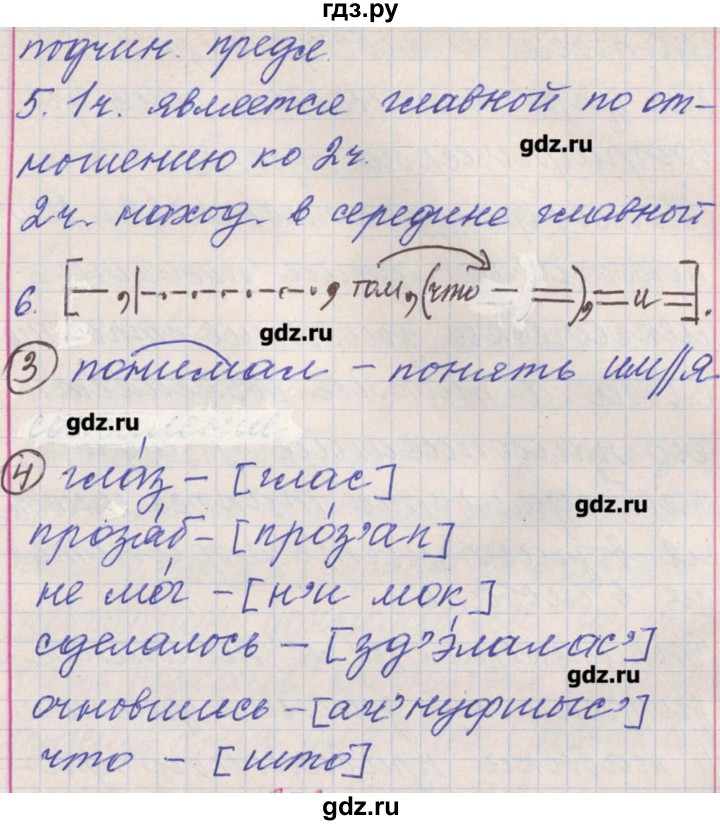 гдз.ру
подчин. предл.
5. 1ч. является главной по от-
gdz.ru
ношению ко 2ч.
2ч. наход. в середине главной
6. [— , |–·–·–·–·–·, том, (что — =), = и =].
gdz.ru
3 понимал – понять им//я
gdz.ru
4 гла́з – [глас]
gdz.ru
прозя́б – [про́з'ап]
не мо́г – [н'и мок]
сделалось – [зд'э́лалас']
gdz.ru
очновшись – [ач'нуфшыс']
что – [што]
gdz.ru